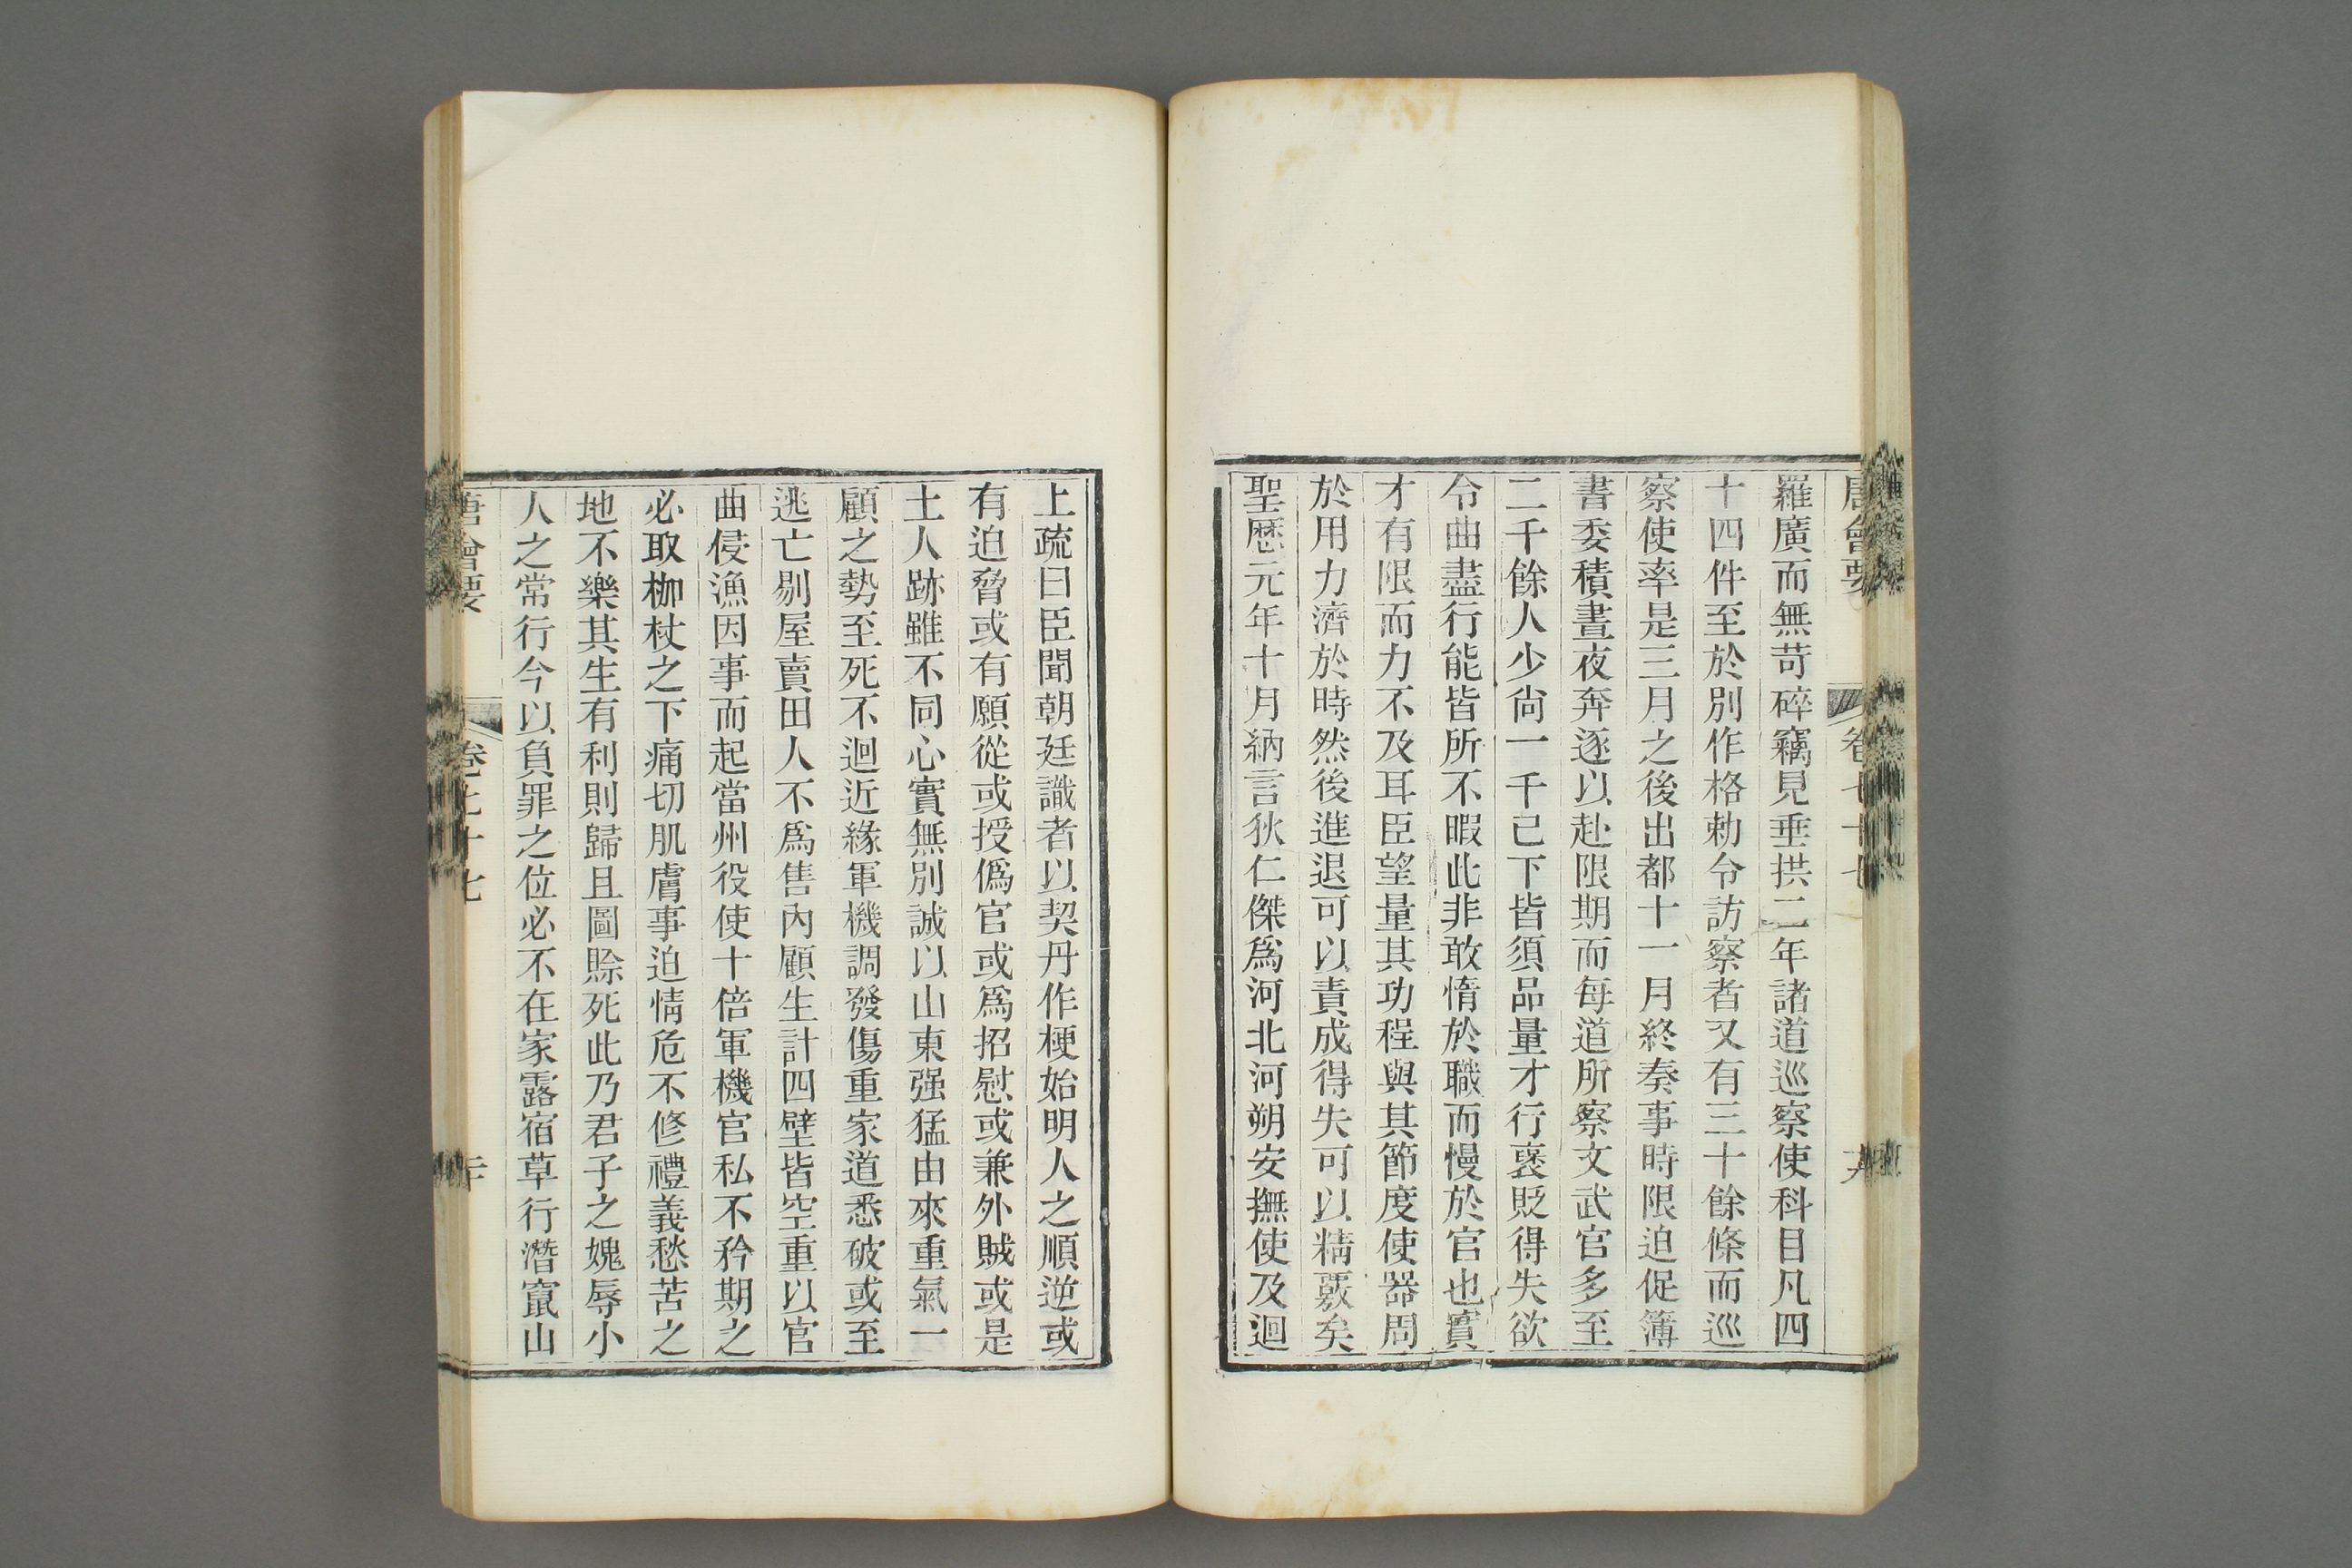 唐會要 卷七十七
羅廣而無苛碎竊見垂拱二年諸道巡察使科目凡四
十四件至於別作格勅令訪察者又有三十餘條而巡
察使率是三月之後出都十一月終奏事時限迫促簿
書委積晝夜奔逐以赴限期而每道所察文武官多至
二千餘人少尙一千已下皆須品量才行褒貶得失欲
令曲盡行能皆所不暇此非敢惰於職而慢於官也實
才有限而力不及耳臣望量其功程與其節度使器周
於用力濟於時然後進退可以責成得失可以精覈矣
聖歷元年十月納言狄仁傑爲河北河朔安撫使及迴
上疏曰臣聞朝廷議者以契丹作梗始明人之順逆或
有迫脅或有願從或授僞官或爲招慰或兼外賊或是
土人跡雖不同心實無別誠以山東强猛由來重氣一
顧之勢至死不迴近緣軍機調發傷重家道悉破或至
逃亡剔屋賣田人不爲售內顧生計四壁皆空重以官
曲侵漁因事而起當州役使十倍軍機官私不矜期之
必取枷杖之下痛切肌膚事迫情危不修禮義愁苦之
地不樂其生有利則歸且圖賒死此乃君子之媿辱小
人之常行今以負罪之位必不在家露宿草行潛竄山
唐會要 卷七十七